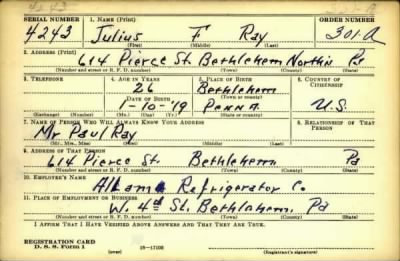 4243 301-A
SERIAL NUMBER 1. NAME (Print) ORDER NUMBER
4243 Julius F Ray 301A
(First) (Middle) (Last)
2. ADDRESS (Print)
614 Pierce St. Bethlehem North'n Pa
(Number and street or R. F. D. number) (Town) (County) (State)
3. TELEPHONE 4. AGE IN YEARS 5. PLACE OF BIRTH 6. COUNTRY OF CITIZENSHIP
26 Bethlehem
(Town or county)
DATE OF BIRTH
1-10-'19 Penna. U.S.
(Exchange) (Number) (Mo.) (Day) (Yr.) (State or country)
7. NAME OF PERSON WHO WILL ALWAYS KNOW YOUR ADDRESS 8. RELATIONSHIP OF THAT PERSON
Mr Paul Ray
(Mr., Mrs., Miss) (First) (Middle) (Last)
9. ADDRESS OF THAT PERSON
614 Pierce St. Bethlehem Pa
(Number and street or R. F. D. number) (Town) (County) (State)
10. EMPLOYER'S NAME
Refrigerator Co.
11. PLACE OF EMPLOYMENT OR BUSINESS
W. 4th St. Bethlehem, Pa
(Number and street or R. F. D. number) (Town) (County) (State)
I AFFIRM THAT I HAVE VERIFIED ABOVE ANSWERS AND THAT THEY ARE TRUE.
REGISTRATION CARD
D. S. S. Form 1 16-17105 (Registrant's signature)
(over)